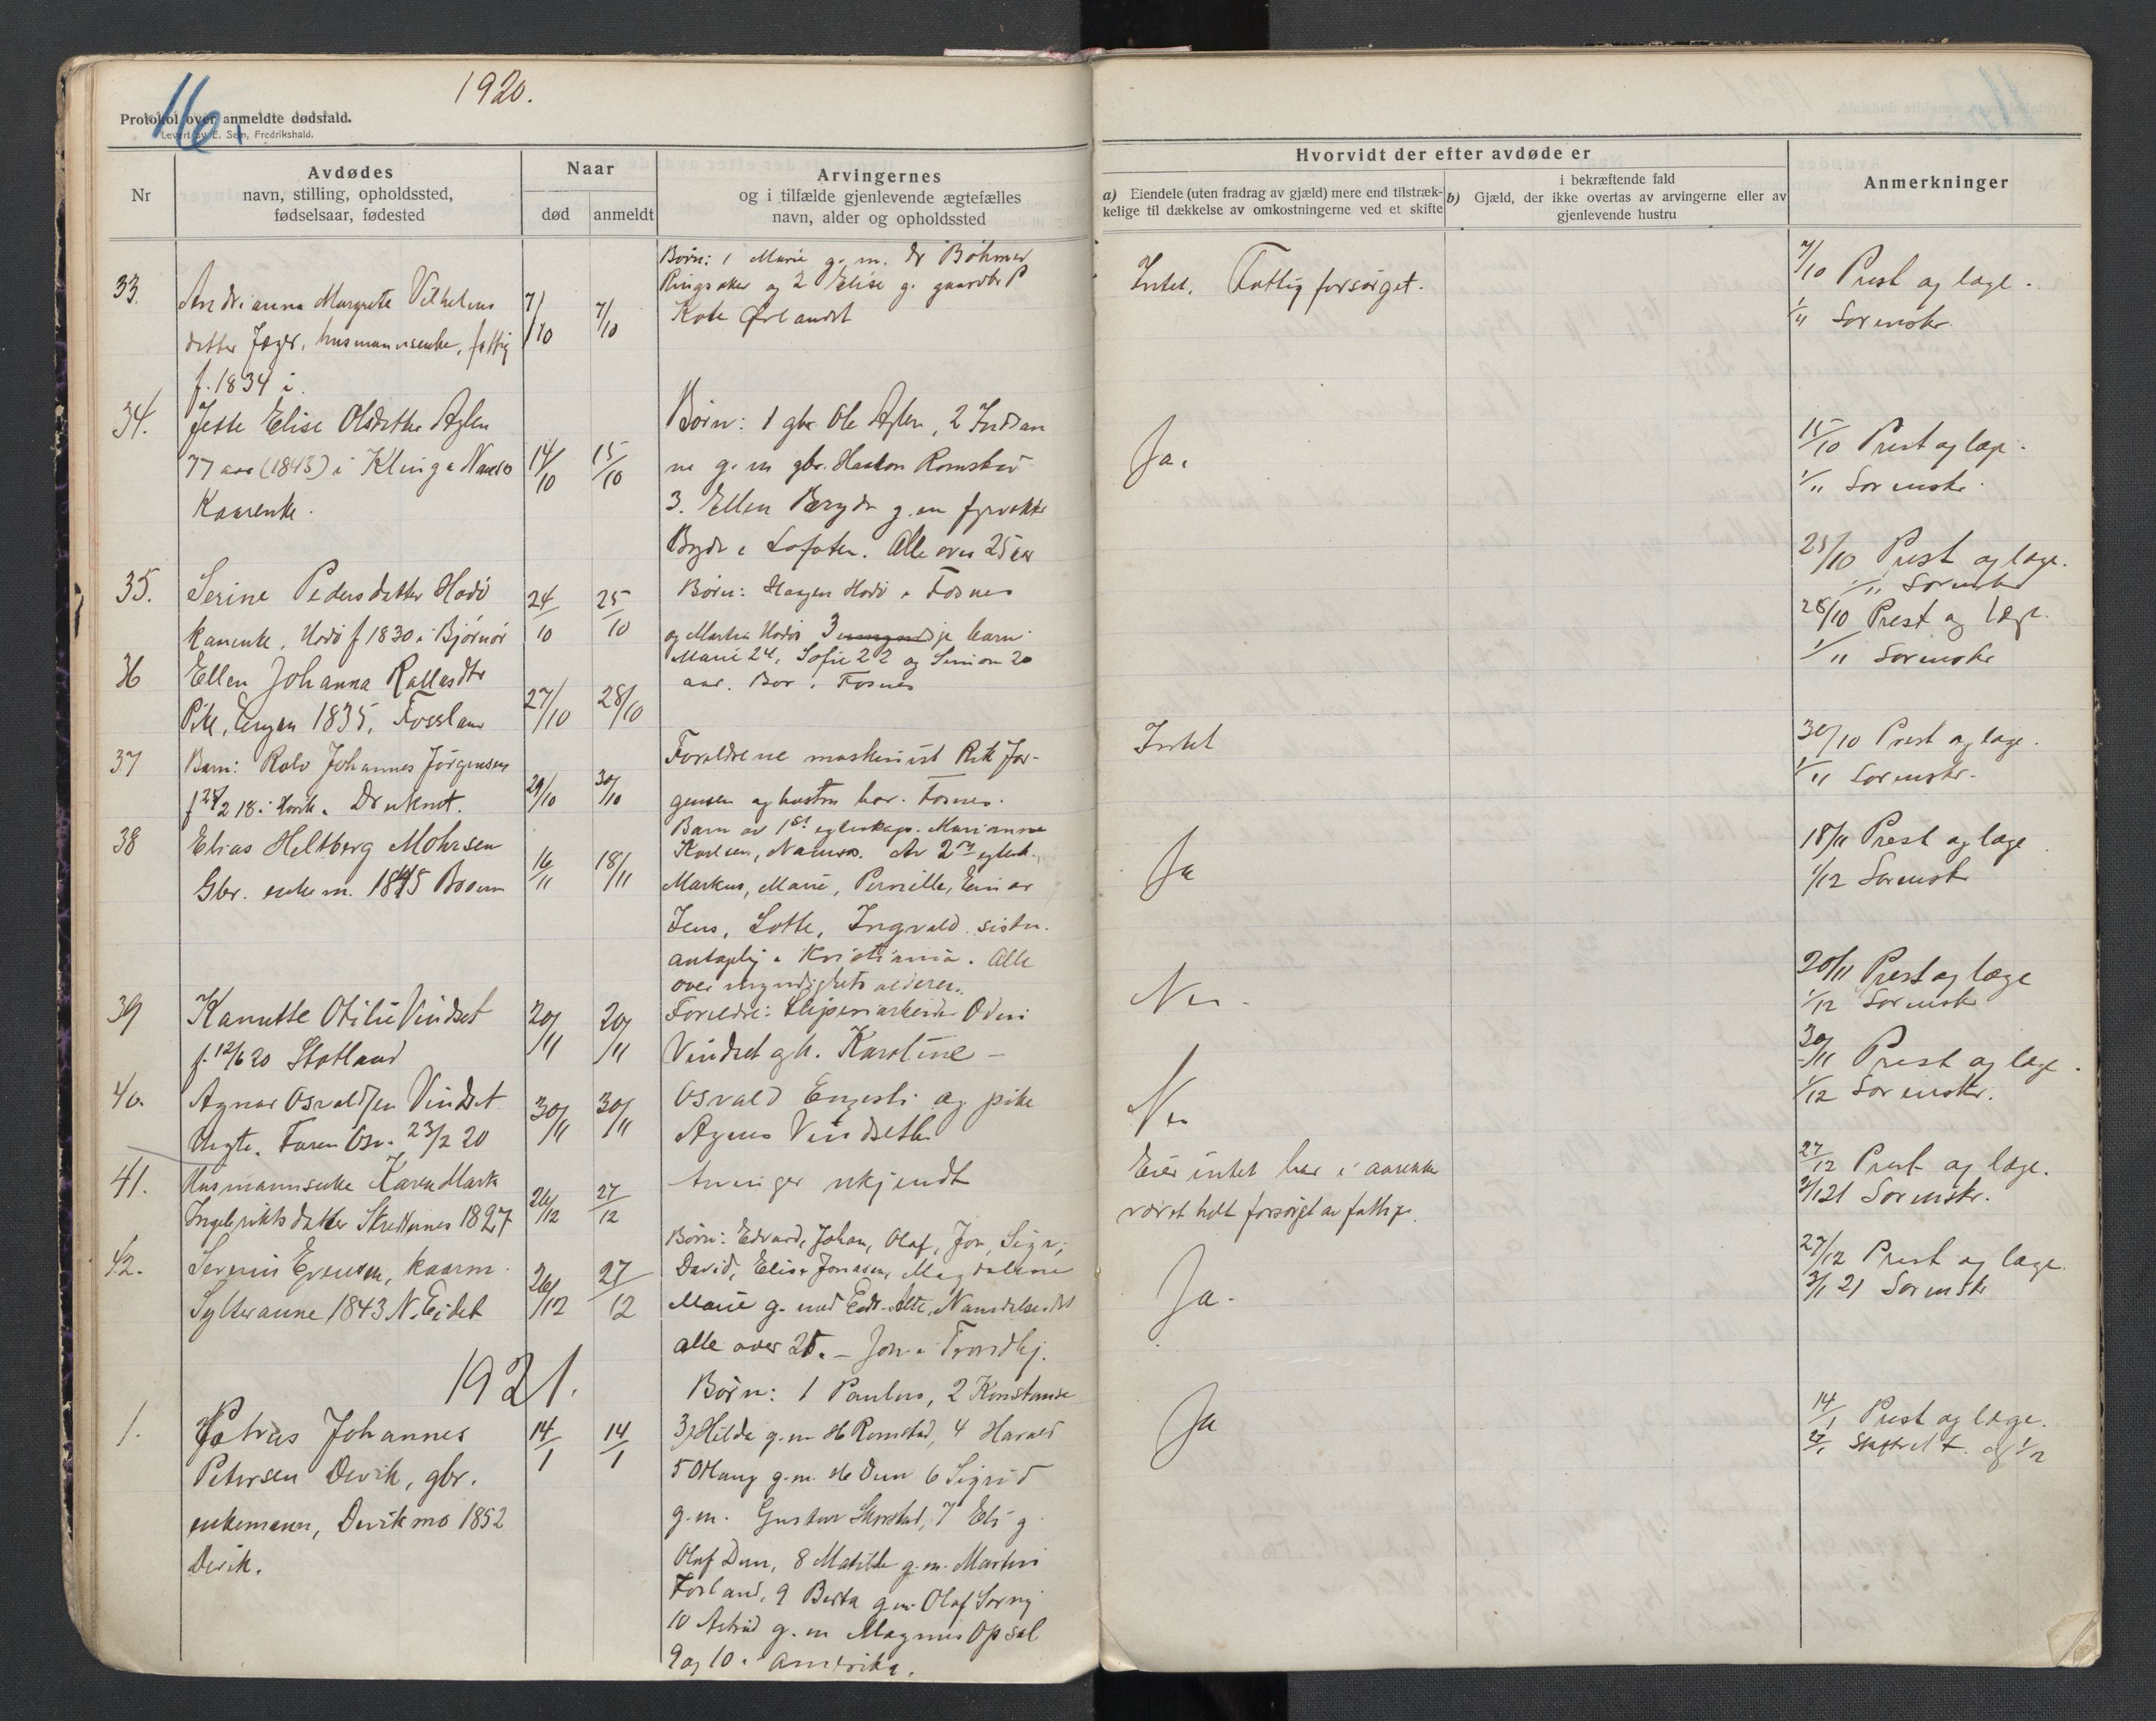 16.
1920.
Protokol over anmeldte dødsfald.
Levert av E. Sem, Fredrikshald.
Nr
Avdødes
navn, stilling, opholdssted,
fødselsaar, fødested
Naar
død
anmeldt
Arvingernes
og i tilfælde gjenlevende ægtefælles
navn, alder og opholdssted
Hvorvidt der efter avdøde er
a) Eiendele (uten fradrag av gjæld) mere end tilstræk-
kelige til dækkelse av omkostningerne ved et skifte
i bekræftende fald
b) Gjæld, der ikke overtas av arvingerne eller av
gjenlevende hustru
Anmerkninger
33.
Andrianna Margrete Vilhelms
datter Jæger, husmannsenke, fattig
f. 1834 i
7/10
7/10
Børn: 1 Marie g. m. dr Bøhmer
Ringsaker og 2 Elise g. gaardbr P
Kote Ørlandet
Intet. Fattigforsørget.
7/10 Prest og læge.
1/11 Sorenskr.
34.
Jette Elise Olsdatter Aglen
77 aar (1843) i Klinga Namsos
Kaarenke.
14/10
15/10
Børn: 1 gbr Ole Aglen, 2 Indian
ne g. m gbr. Romstad
3. Ellen Bryde g. m fyrvokter
Bryde i Lofoten. Alle over 25 aar
Ja.
15/10 Prest og læge.
1/11 Sorenskr.
35.
Serine Pedersdatter Hodø
kaarenke, Hodø f 1830 i Bjørnør
24/10
25/10
Børn: Haagen Hodø i Fosnes
og Martin Hodø 3 umyndige barn
Marie 24, Sofie 22 og Simon 20
aar. Bor i Fosnes
25/10 Prest og læge.
1/11 Sorenskr
36
Ellen Johanna Rallesdtr
Pike, 1835, Fossland
27/10
28/10
28/10 Prest og læge.
1/11 Sorenskr
37
Barn: Rolv Johannes Jørgensen
f 28/2 18. Druknet.
29/10
30/10
Foreldrene maskinist Jør-
gensen og hustru her. Fosnes.
Intet
30/10 Prest og læge.
1/11 Sorenskr.
38
Elias Heltberg Mohrsen
Gbr. enkem. 1845
16/11
18/11
Barn av 1st egteskap. Marianne
Karlsen, Namsos. Av 2net egtesk.
Markus, Marie, Pernille, Einar
Jens, Lotte, Ingvald. sistn.
antagelig i Kristiania. Alle
over myndighets alderen.
Ja
18/11 Prest og læge
1/12 Sorenskr
39
Kanutte Otilie Vindset
f. 12/6 20 Statland
20/11
20/11
Foreldre: Sliperiarbeider Odin
Vindset og h. Karoline -
Nei -
20/11 Prest og læge
1/12 Sorenskr
40.
Agnar Osvaldsen Vindset
Uegte. Faren Osv. 23/2 20
30/11
30/11
Osvald Engesli og pike
Agnes Vindseth
Nei
30/11 Prest og læge.
1/12 Sorenskr.
41.
Husmannsenke Karen Marta
Ingebriktsdatter 1827
26/12
27/12
Arvinger ukjendt
Eier intet har i aarrekke
været helt forsørget av fattigv.
27/12 Prest og læge.
3/1 21 Sorenskr.
42.
Severin Evensen, kaarm.
Sylteraunet 1843 N. Eidet
26/12
27/12
Børn: Edvard, Johan, Olaf, Jon, Sigr,
David, Elise Jonasen, Magdalene
Marie g. med Namdalseidet
alle over 25. - Jon i Trondhj.
Ja.
27/12 Prest og læge.
3/1 21 Sorenskr
1921.
1.
Petrus Johannes
Petersen Devik, gbr.
enkemann, Devikmo 1852
Devik.
14/1
14/1
Børn: 1 Paulus, 2 Konstanse
3 Hilda g. m H Romstad, 4 Harald
5 g. m. H Dun 6 Sigrid
g. m. Gustav Skorstad, 7 Eli g
Olaf Dun, 8 Matilde g. m. Martin
Forland, 9 Berta g. m. Olaf
10 Astrid g. m Magnus Opsal
9 og 10 i Amerika.
Ja
14/1 Prest og læge.